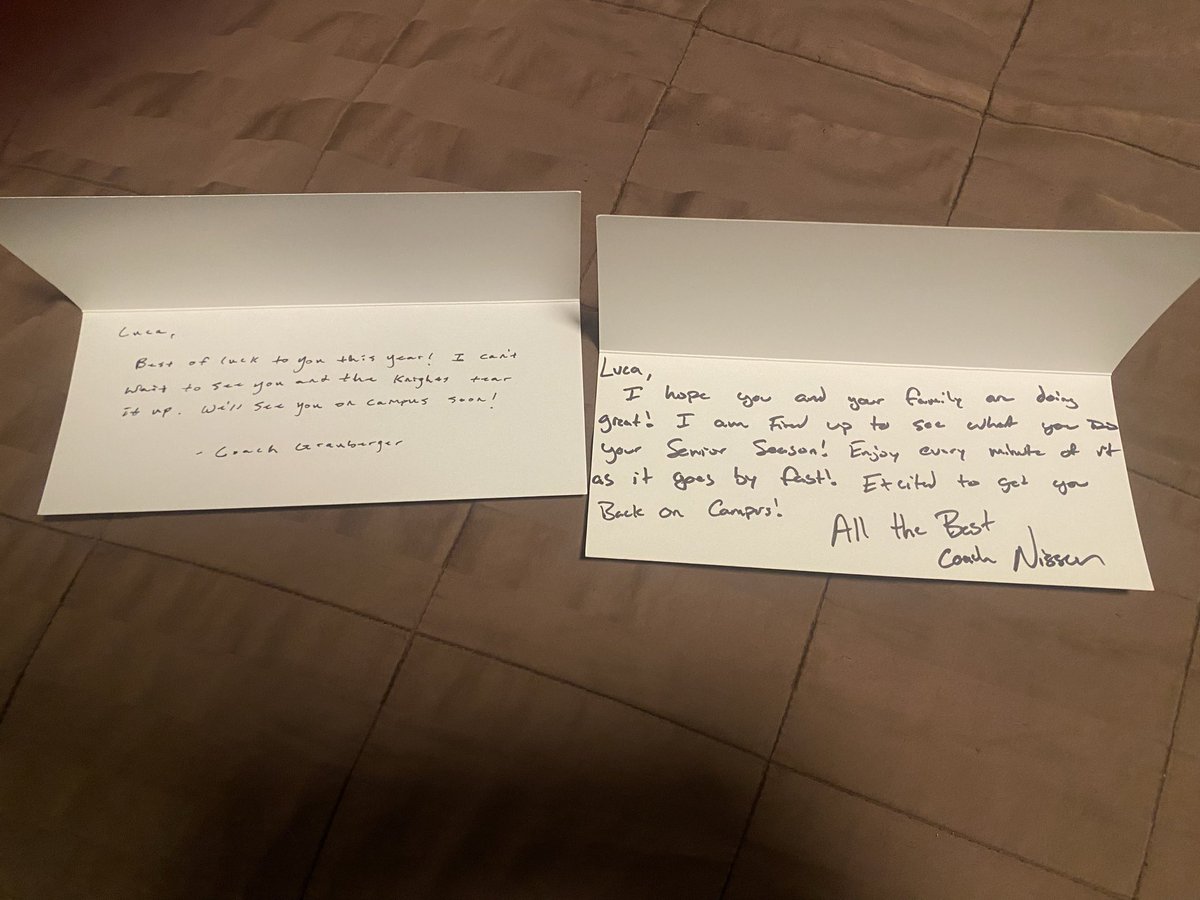 Luca,
Best of luck to you this year! I can't
wait to see you and the Knights tear
it up. We'll see you on campus soon!
- Coach Granberger
Luca,
I hope you and your family are doing
great! I am Fired up to see what you Do
your Senior Season! Enjoy every minute of it
as it goes by fast! Excited to get you
Back on Campus!
All the Best
Coach Nissen